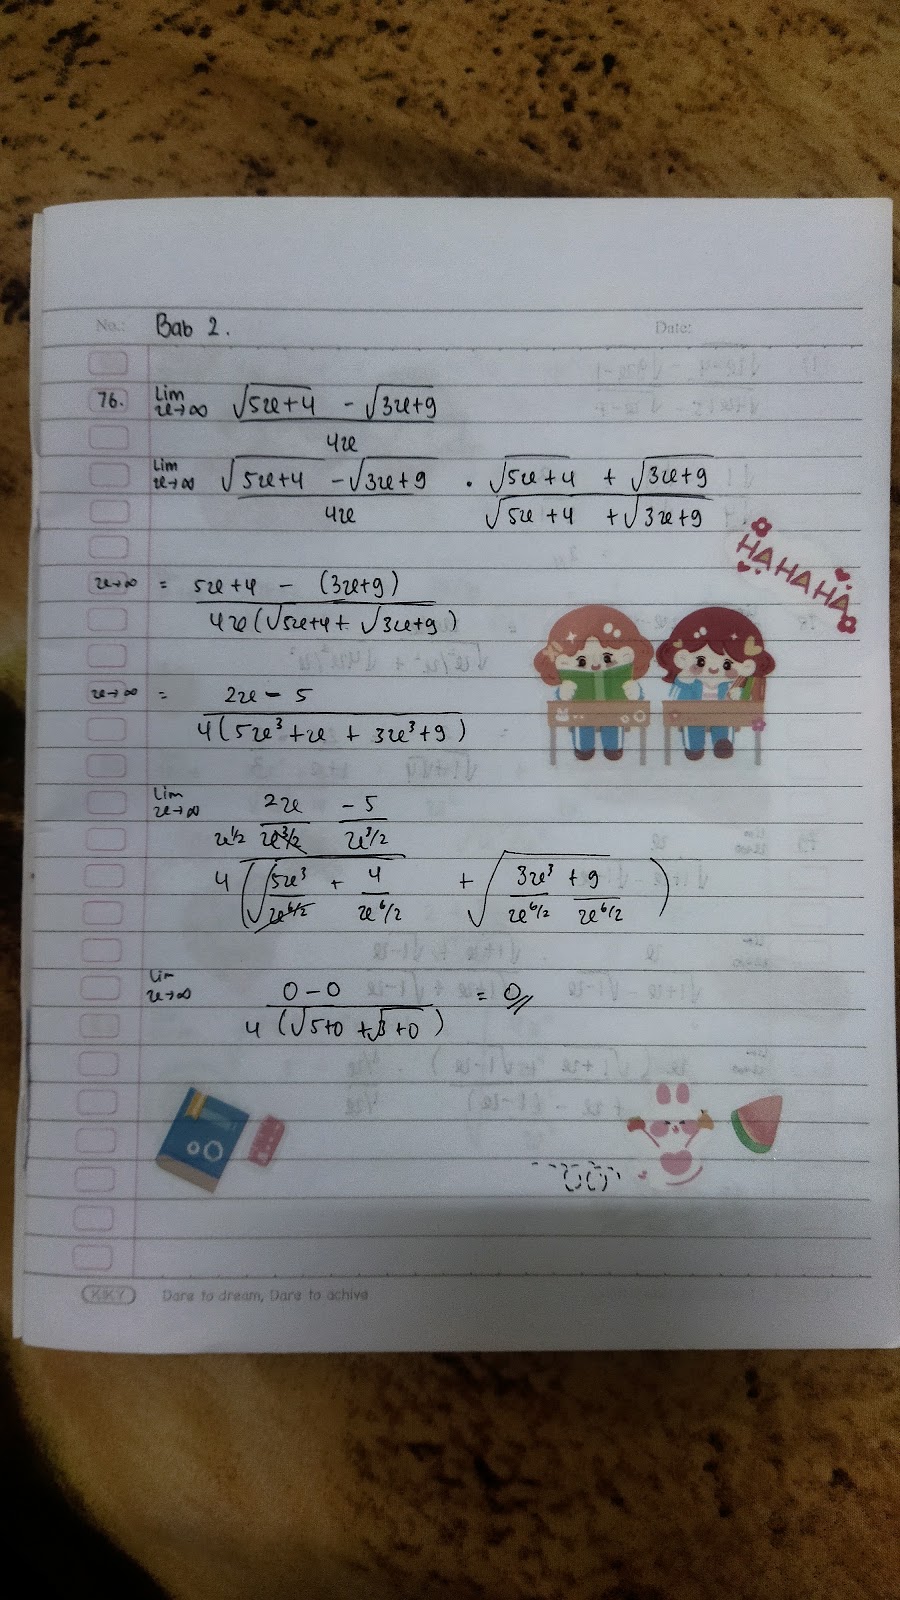 No.: Bab 2. Date:
76. Lim x→∞ √5x+4 - √3x+9
4x
Lim x→∞ √5x+4 - √3x+9 . √5x+4 + √3x+9
4x √5x+4 + √3x+9
HA HA HA
x→∞ = 5x+4 - (3x+9)
4x(√5x+4 + √3x+9)
x→∞ = 2x - 5
4(5x³+x + 3x³+9)
Lim x→∞ 2x - 5
x1/2 x3/2 x3/2
4(√5x³ + 4 + √3x³ + 9)
x6/2 x6/2 x6/2 x6/2
Lim x→∞ 0 - 0 = 0
4 (√5+0 + √3+0)
KKY Dare to dream, Dare to achive